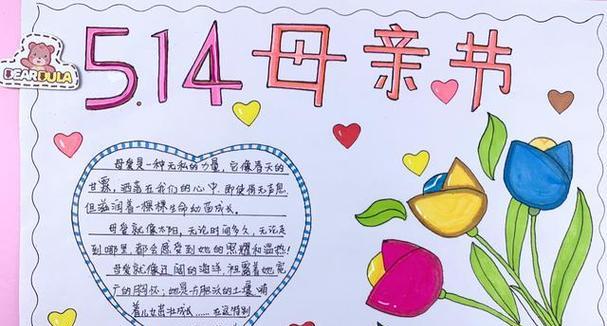 BEARBULA
5.14 母亲节
母爱是一种无私的力量，它像春天的
甘露，洒落在我们的心中，即使悄无声息
但滋润着一棵棵生命幼苗成长。
母爱就像太阳，无论时间多久，无论走
到哪里，都会感受到她的照耀和温热！
母爱就像辽阔的海洋，袒露着她宽
广的胸怀；她是万亩沃的土壤
着儿女茁壮成长......在这特别